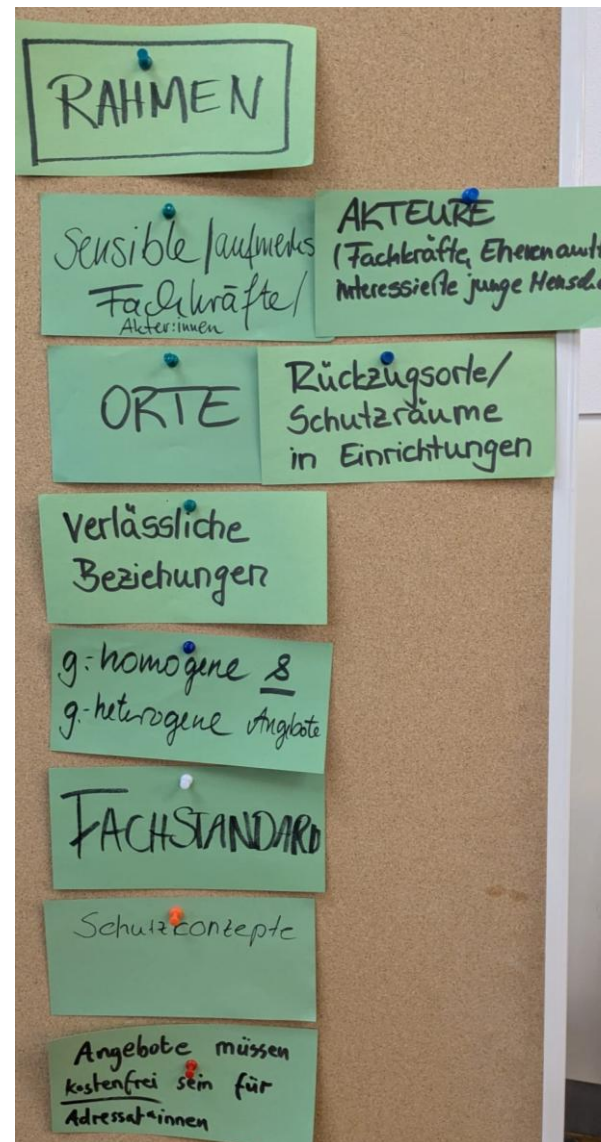 RAHMEN
Sensible/aufmerks
Fachkräfte/
Akter:innen
AKTEURE
(Fachkräfte, Eherenamt
interessierte junge Mensch
ORTE
Rückzugsorte/
Schutzräume
in Einrichtungen
Verlässliche
Beziehungen
g-homogene &
g-heterogene Angebote
FACHSTANDARD
Schutzkonzepte
Angebote müssen
kostenfrei sein für
Adressat*innen